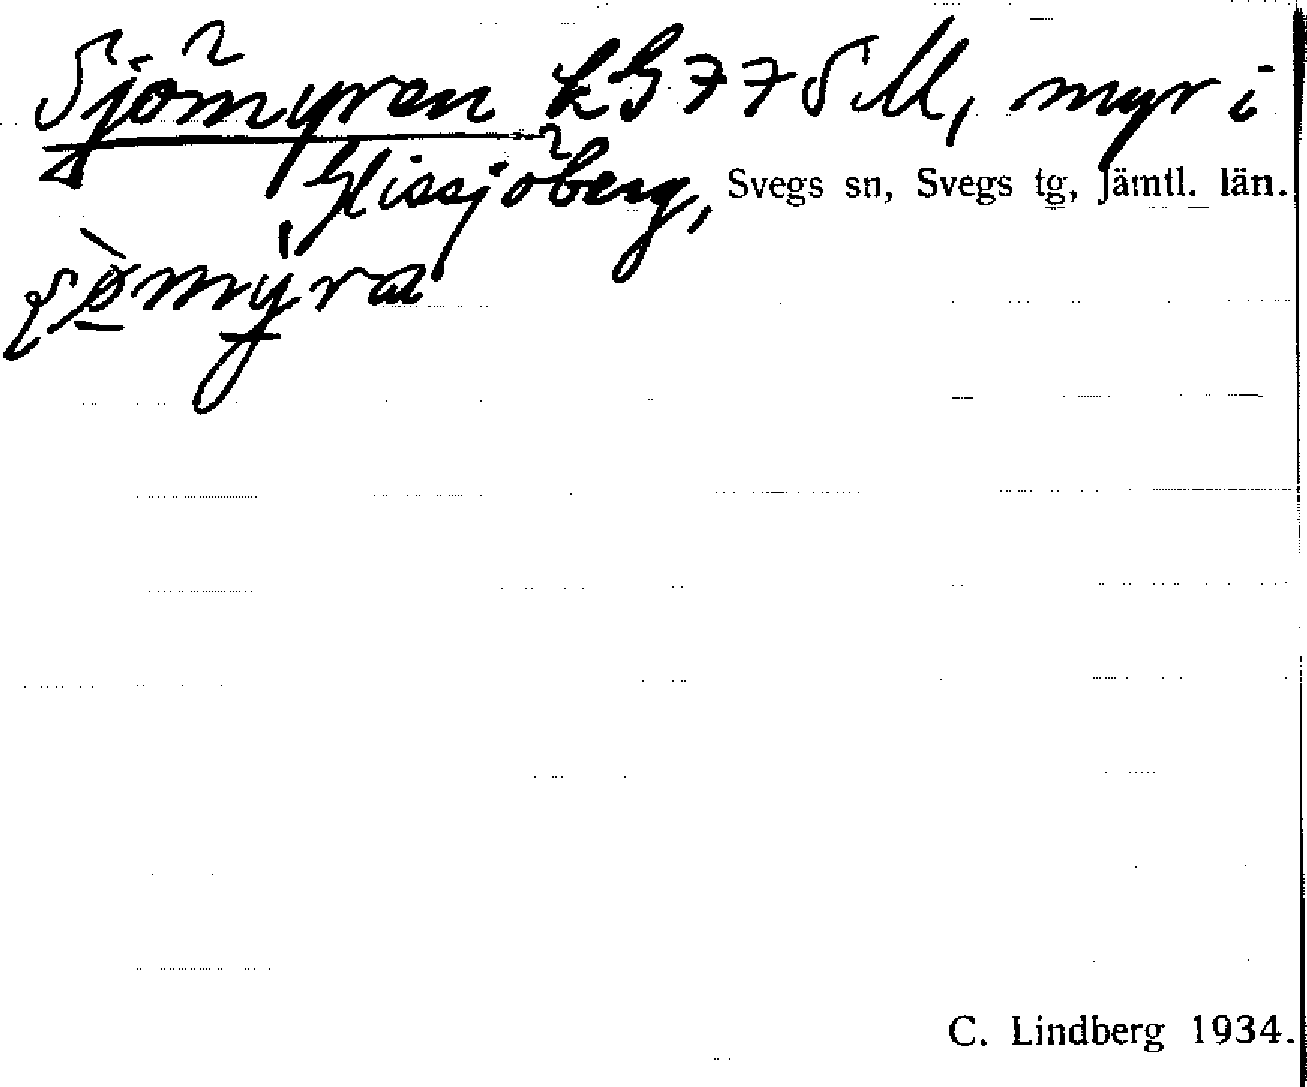 Sjömyren kG 77 SM, myr i
Glissjöberg, Svegs sn, Svegs tg, Jämtl. län.
C. Lindberg 1934.